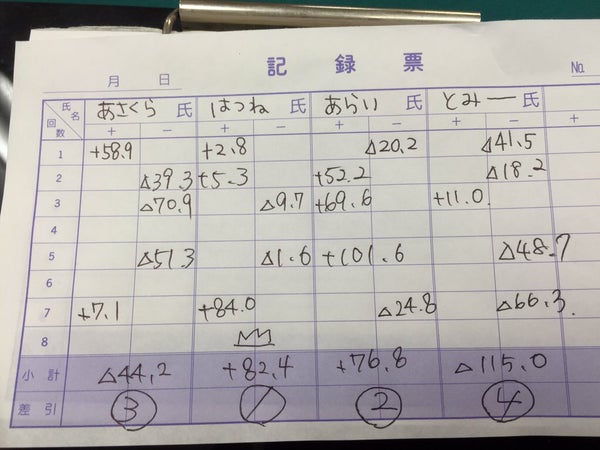 記録票
月 日 No.
氏名 回数 あさくら 氏 はつね 氏 あらい 氏 とみー 氏
+ − + − + − + − +
1 +58.9 +2.8 △20.2 △41.5
2 △39.3 +5.3 +52.2 △18.2
3 △70.9 △9.7 +69.6 +11.0
4
5 △51.3 △1.6 +101.6 △48.7
6
7 +7.1 +84.0 △24.8 △66.3
8
小計 △44.2 +82.4 +76.8 △115.0
差引 ③ ① ② ④